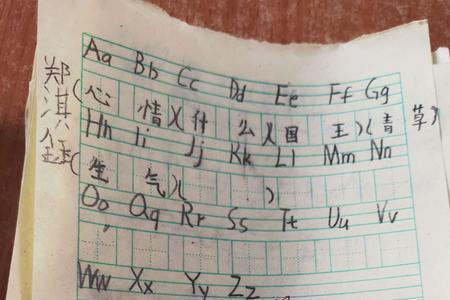 郑淇
Aa Bb Cc Dd Ee Ff Gg
(心情)(什么)(国王)(青草)
Hh Ii Jj Kk Ll Mm Nn
(生气)( )
Oo, Qq Rr Ss Tt Uu Vv
Ww Xx Yy Zz